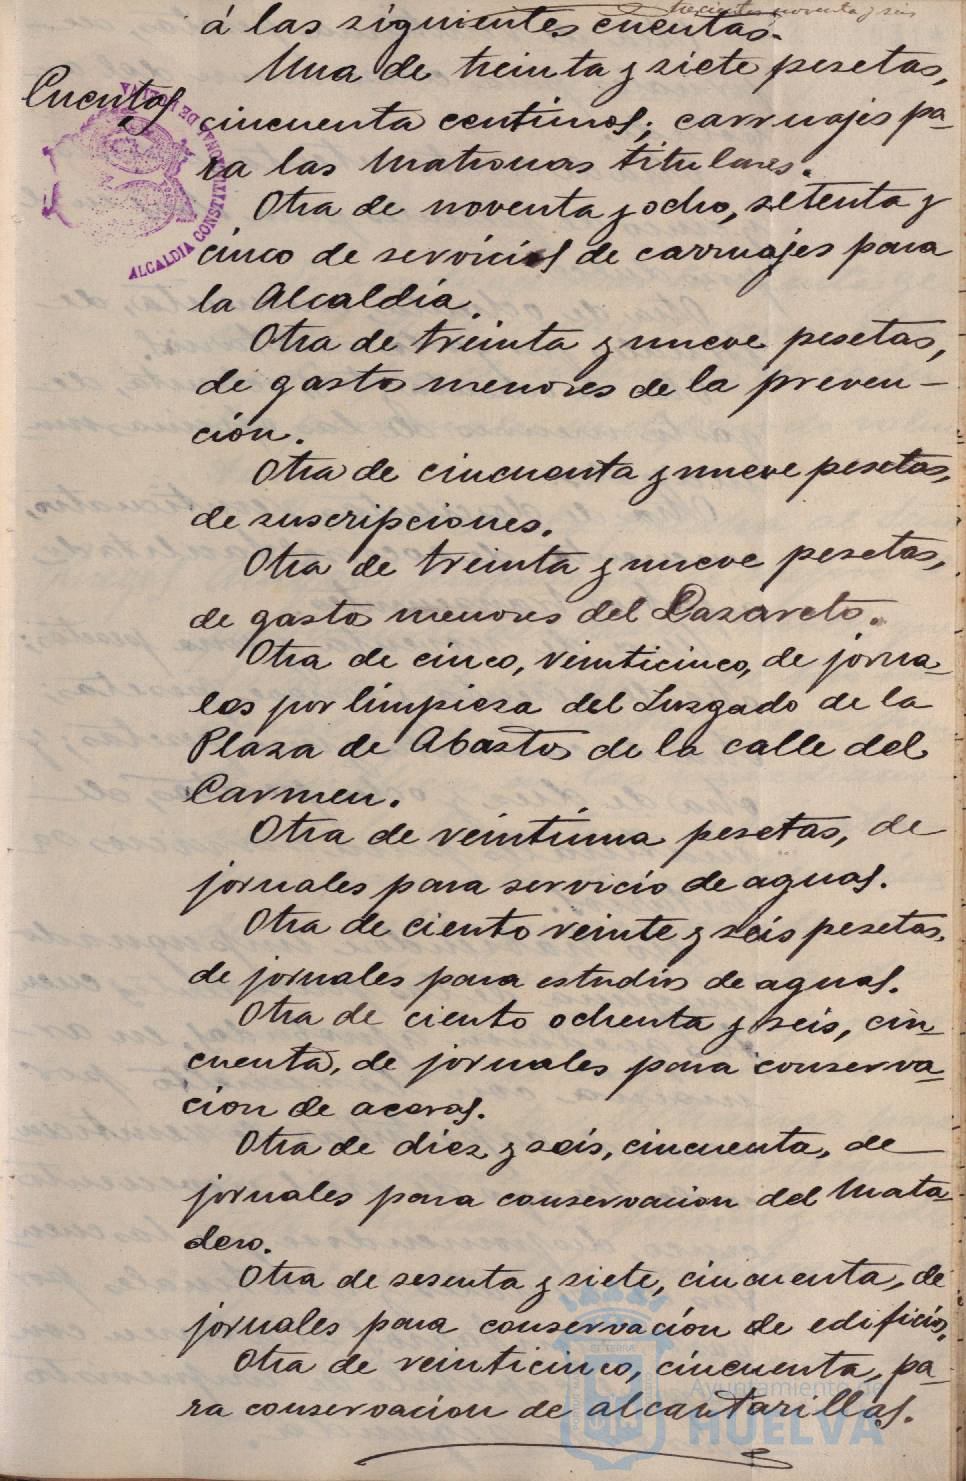 trecientos noventa y seis
á las siguientes cuentas.
Cuentas
Una de treinta y siete pesetas,
cincuenta centimos; carruajes pa-
ra las Matronas titulares.
Otra de noventa y ocho, setenta y
cinco de servicios de carruajes para
la Alcaldía.
Otra de treinta y nueve pesetas,
de gastos menores de la preven-
ción.
Otra de cincuenta y nueve pesetas,
de suscripciones.
Otra de treinta y nueve pesetas,
de gastos menores del Lazareto.
Otra de cinco, veinticinco, de jorna-
les por limpieza del Juzgado de la
Plaza de Abastos de la calle del
Carmen.
Otra de veintiuna pesetas, de
jornales para servicio de aguas.
Otra de ciento veinte y seis pesetas,
de jornales para estudios de aguas.
Otra de ciento ochenta y seis, cin-
cuenta, de jornales para conserva-
cion de aceras.
Otra de diez y seis, cincuenta, de
jornales para conservacion del Mata-
dero.
Otra de sesenta y siete, cincuenta, de
jornales para conservación de edificios,
Otra de veinticinco, cincuenta, pa-
ra conservacion de alcantarillas.
ALCALDIA CONSTITUCIONAL DE HUELVA
Ayuntamiento de
HUELVA